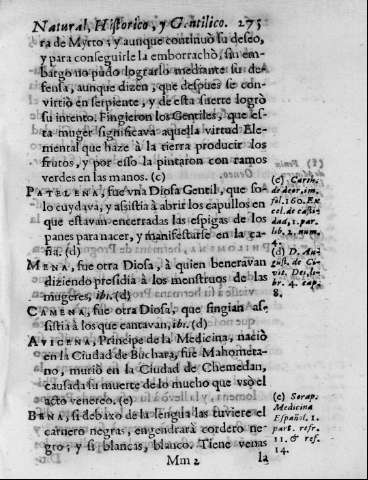 Natural, Historico, y Gentilico. 275
ra de Myrto; y aunque continuò su deseo,
y para conseguirle la emborrachò, sin em-
bargo no pudo lograrlo mediante su de-
fensa, aunque dizen, que despues se con-
virtiò en serpiente, y de esta suerte logrò
su intento. Fingieron los Gentiles, que es-
ta muger significava aquella virtud Ele-
mental que haze à la tierra producir los
frutos, y por esso la pintaron con ramos
verdes en las manos. (c)
PATELENA, fue vna Diosa Gentil, que so-
lo cuydava, y assistia à abrir los capullos en
que estavan encerradas las espigas de los
panes para nacer, y manifestarse en la ca-
ña. (d)
MENA, fue otra Diosa, à quien beneravan
diziendo presidia à los menstruos de las
mugeres, ibi. (d)
CAMENA, fue otra Diosa, que fingian as-
sistia à los que cantavan, ibi. (d)
AVICENA, Principe de la Medicina, naciò
en la Ciudad de Buchara, fue Mahometa-
no, muriò en la Ciudad de Chemedan,
causada su muerte de lo mucho que vsò el
acto venereo. (e)
BENA, si debaxo de la lengua las tuviere el
carnero negras, engendrarà cordero ne-
gro; y si blancas, blanco. Tiene venas
Mm 2 la
(c) Carin.
de deor. im.
fol. 160. Ex
cel. de casti-
dad, 1. par.
lib. 2. num.
4.
(d) D. Au-
gust. de Ci-
vit. Dei, li-
br. 4. cap.
8.
(e) Sorap.
Medicina
Español. 1.
part. refr.
11. & ref.
14.